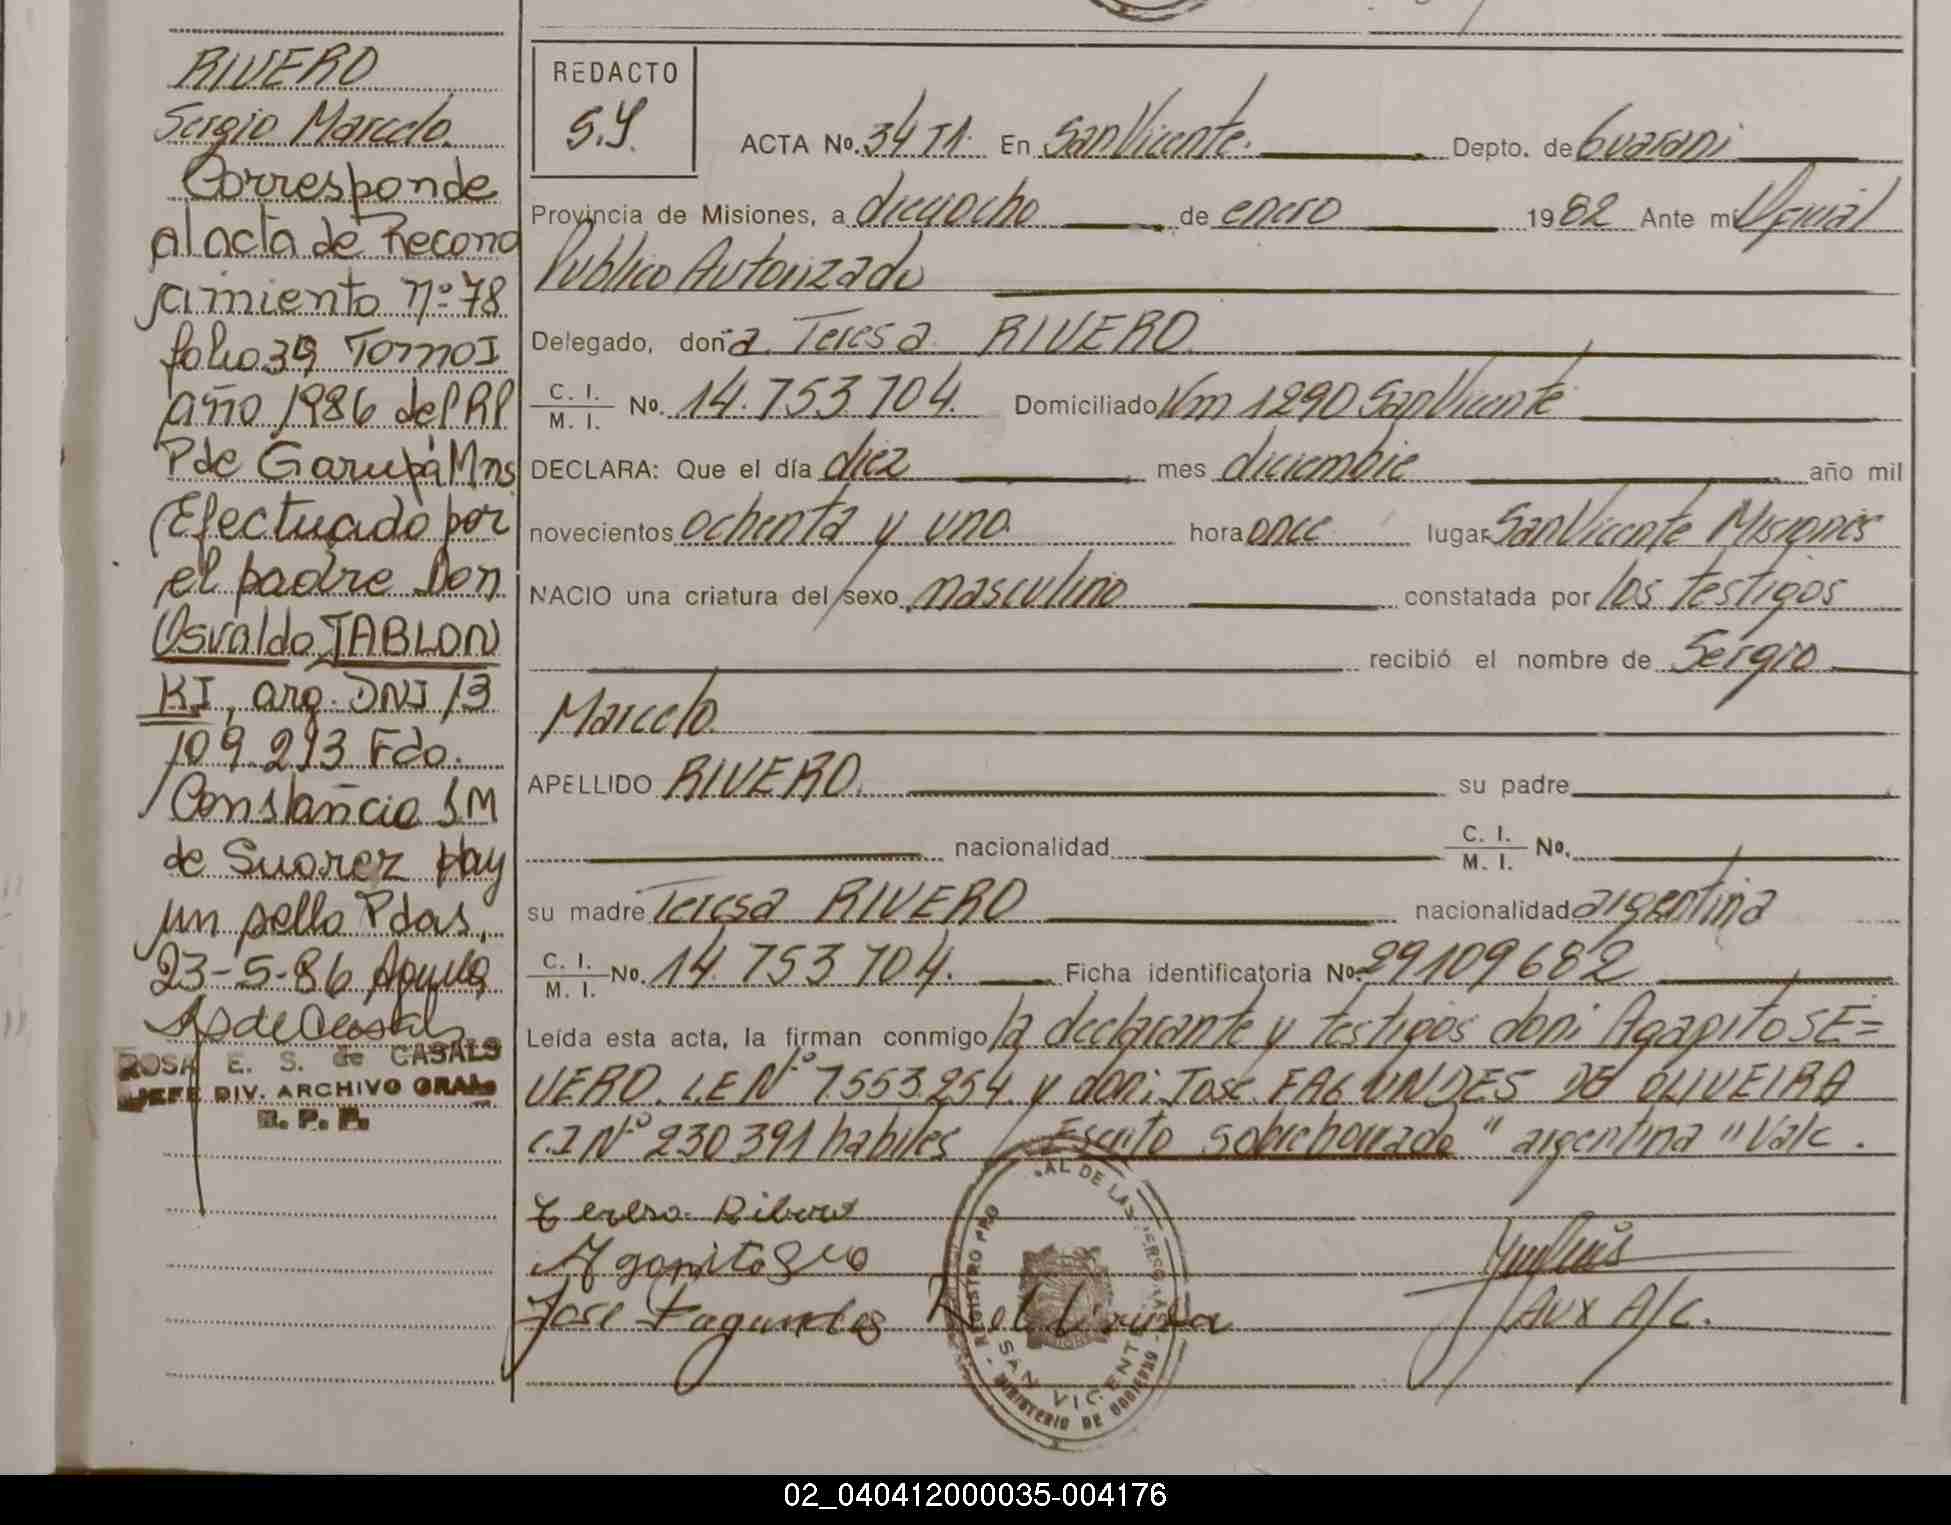 RIVERO
Sergio Marcelo.
Corresponde
al acta de Recono
cimiento nº 78
folio 39 Tomo I
año 1986 del RP
P de Garupá Mns
Efectuado por
el padre Don
Osvaldo JABLON
KI, arg. DNI 13
109.293 Fdo.
Constancio S M
de Suarez Hay
un sello Pdas,
23-5-86
ROSA E. S. de CASALS
JEFE DIV. ARCHIVO GRAL
R. P. P.
REDACTO
S.Y.
ACTA No. 34 T1. En San Vicente. Depto. de Guarani
Provincia de Misiones, a dieciocho de enero 1982 Ante mi Oficial
Publico Autorizado
Delegado, doña Teresa RIVERO
C. I. / M. I. No. 14.753 704. Domiciliado Km 1290 San Vicente
DECLARA: Que el día diez mes diciembre año mil
novecientos ochenta y uno hora once lugar San Vicente Misiones
NACIO una criatura del sexo masculino constatada por los testigos
recibió el nombre de Sergio
Marcelo.
APELLIDO RIVERO. su padre
nacionalidad C. I. / M. I. No.
su madre Teresa RIVERO nacionalidad argentina
C. I. / M. I. No. 14.753 704. Ficha identificatoria No. 29109682
Leída esta acta, la firman conmigo la declarante y testigos don: Agapito SE=
VERO. L.E Nº 7553.254. y don: Jose FAGUNDES DE OLIVEIRA
C.I Nº 230 391 habiles Escrito sobreborrado " argentina " Vale.
Teresa Ribero
Agapito
Jose Fagundes
Aux A/C.
REGISTRO PRO AL DE LAS PERSONAS
SAN VICENTE
MINISTERIO DE GOBIERNO
02_040412000035-004176